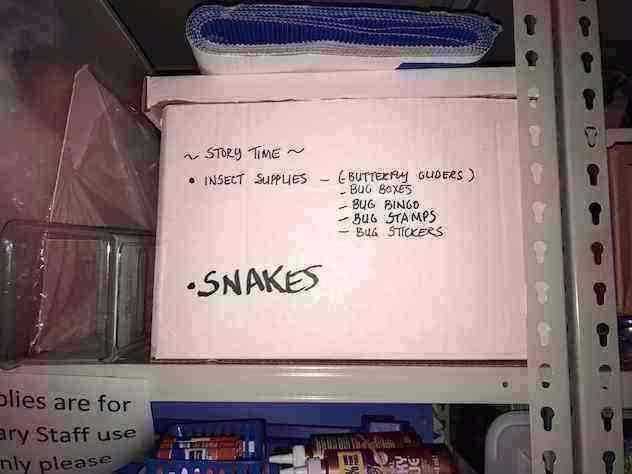 ~ STORY TIME ~
• INSECT SUPPLIES - (BUTTERFLY GLIDERS)
- BUG BOXES
- BUG BINGO
- BUG STAMPS
- BUG STICKERS
• SNAKES
plies are for
ary Staff use
nly please